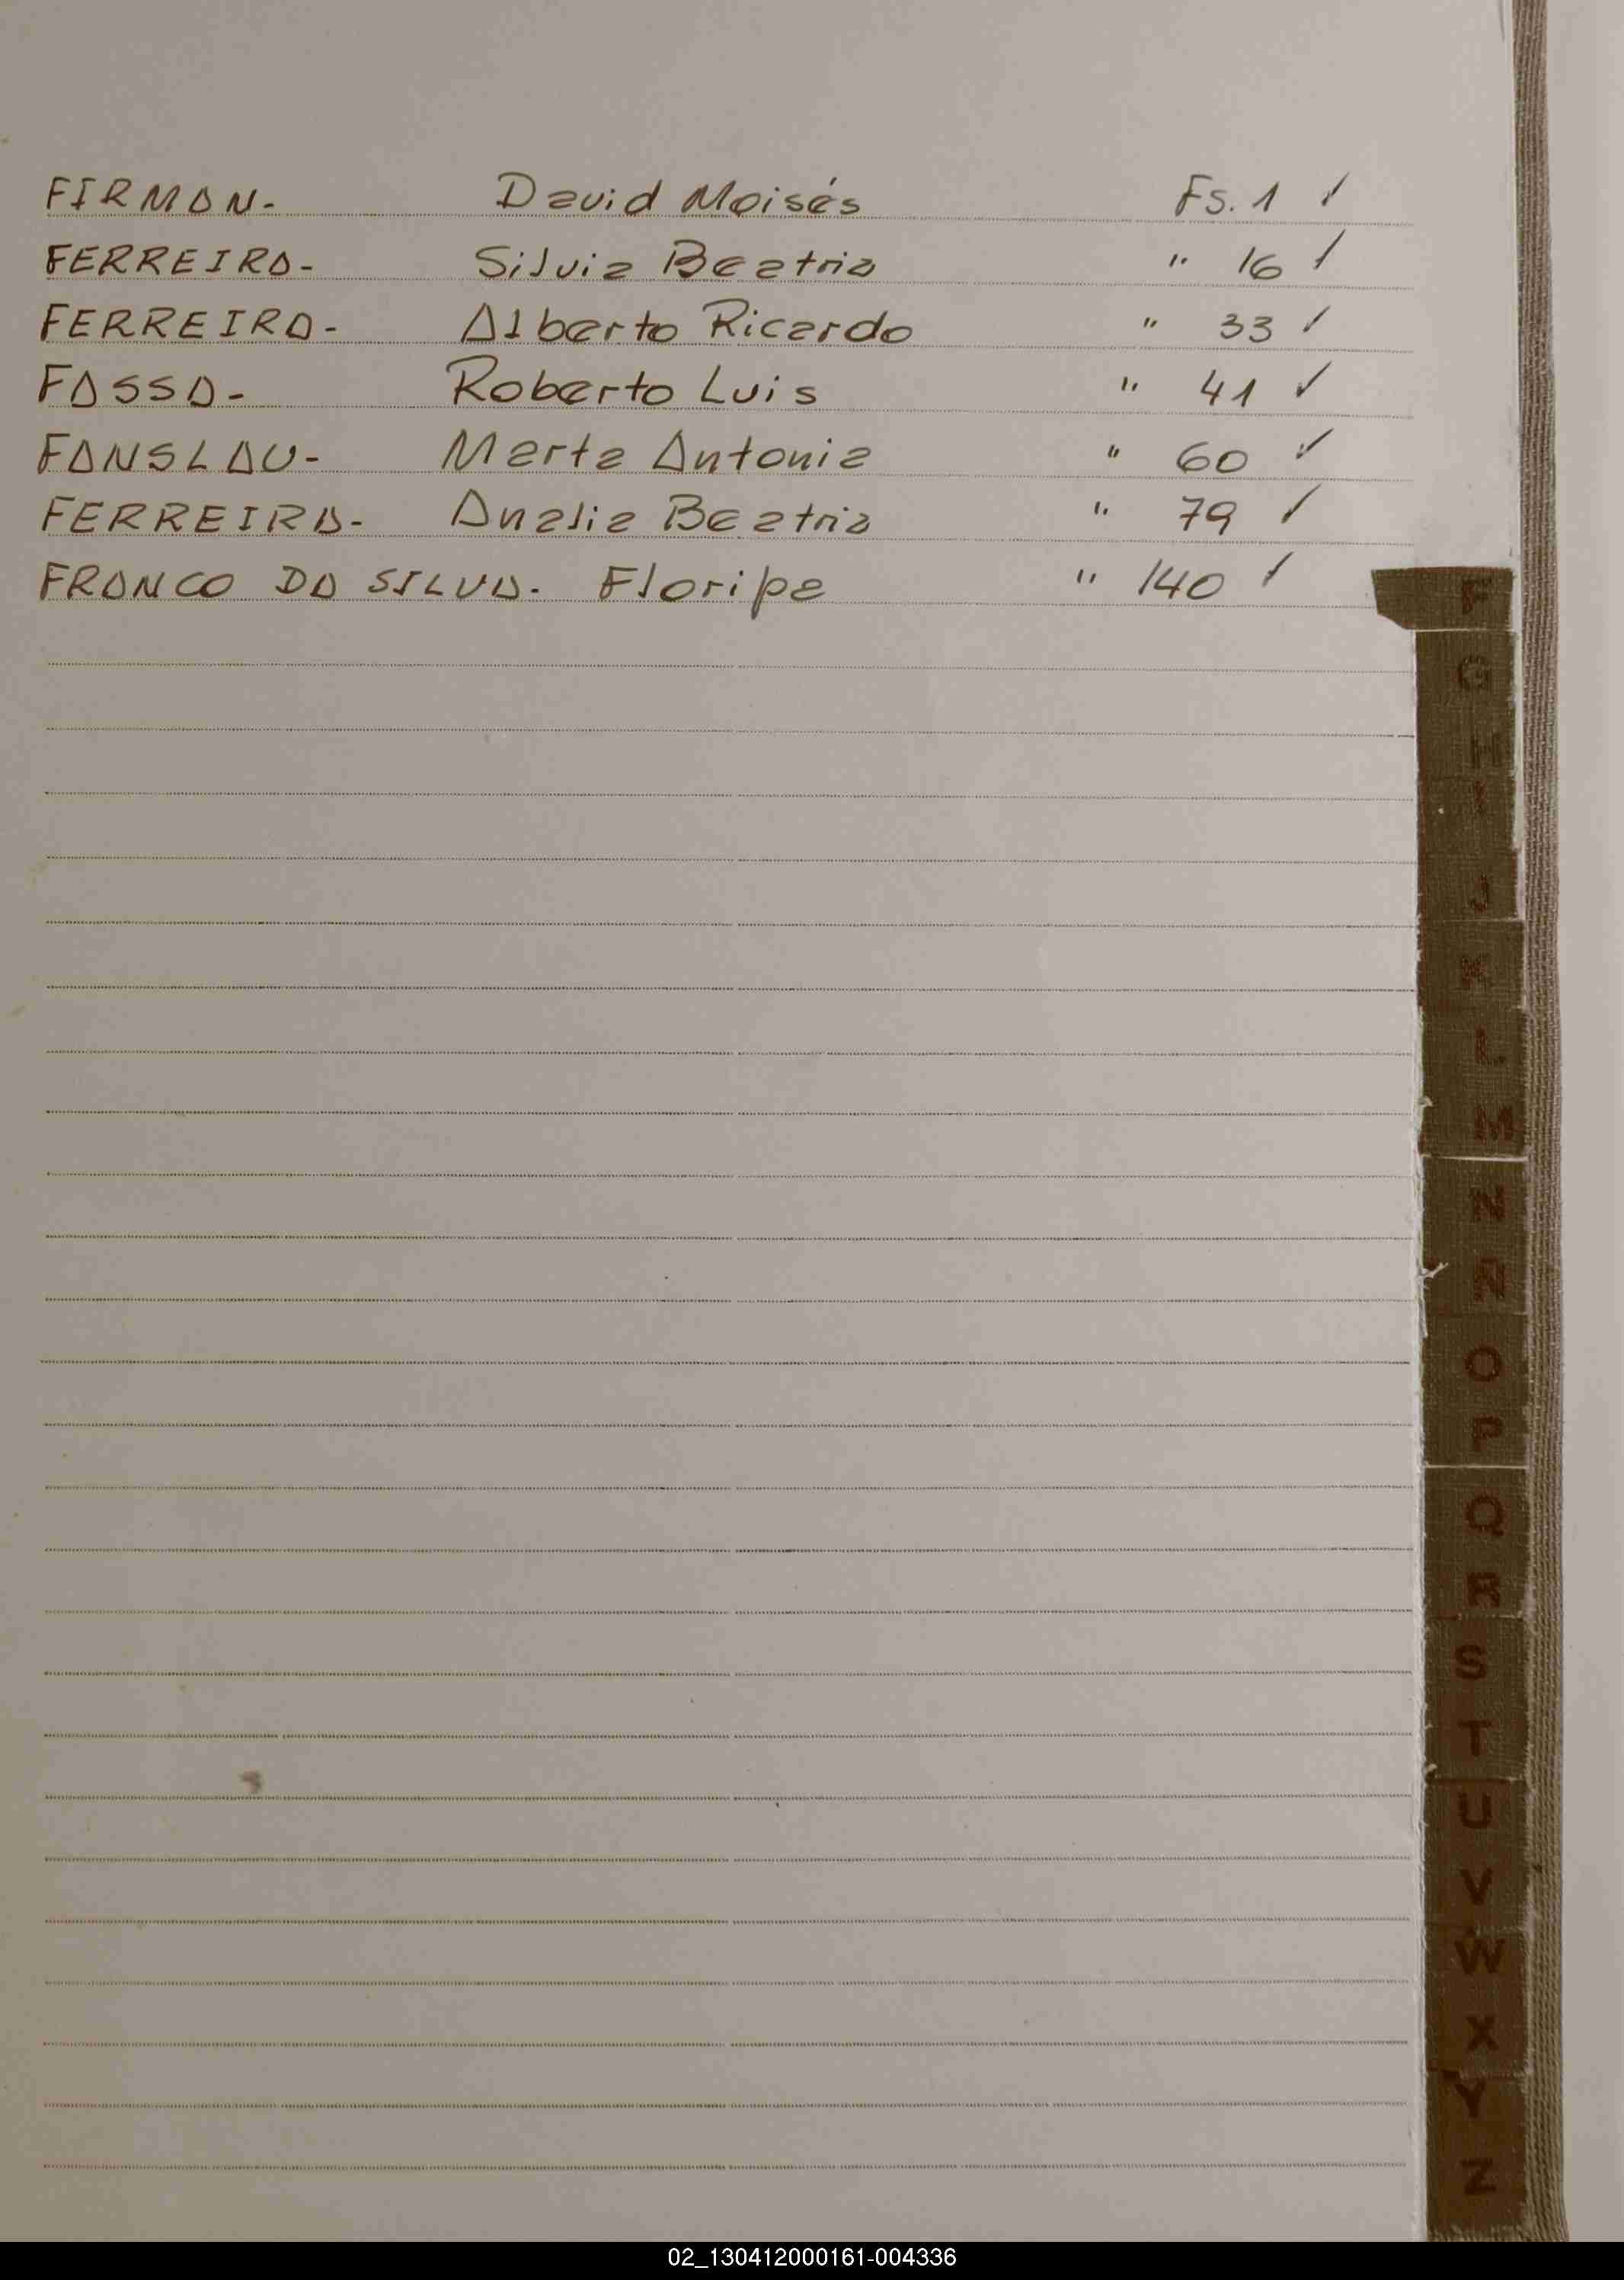 FIRMAN- David Moisés Fs. 1 ✓
FERREIRA- Silvia Beatriz " 16 ✓
FERREIRA- Alberto Ricardo " 33 ✓
FASSA- Roberto Luis " 41 ✓
FANSLAU- Marta Antonia " 60 ✓
FERREIRA- Analia Beatriz " 79 ✓
FRANCO DA SILVA. Floripa " 140 ✓
F
G
H
I
J
K
L
M
N
Ñ
O
P
Q
R
S
T
U
V
W
X
Y
Z
02_130412000161-004336